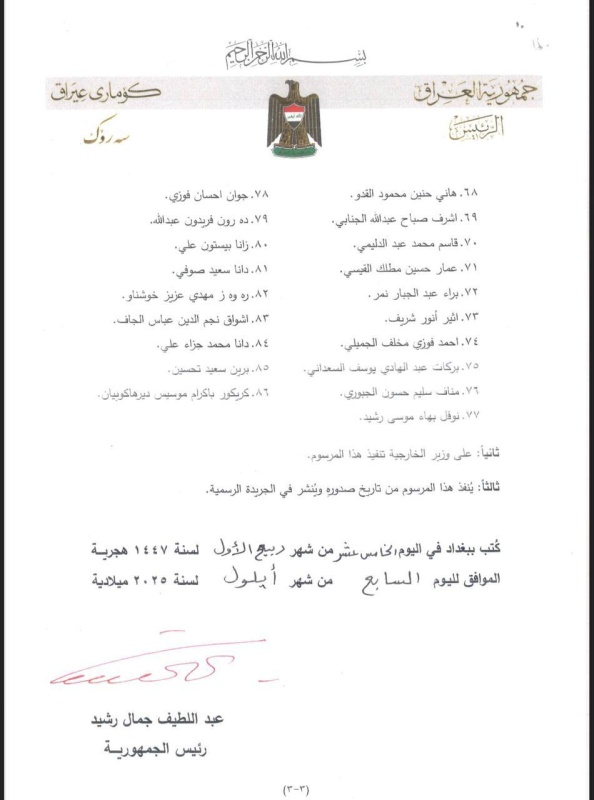 بسم الله الرحمن الرحيم
جمهورية العراق
الرئيس
كۆماری عێراق
سەرۆك
٦٨. هاني حنين محمود القدو.
٦٩. اشرف صباح عبدالله الجنابي.
٧٠. قاسم محمد عبد الدليمي.
٧١. عمار حسين مطلك القيسي.
٧٢. براء عبد الجبار نمر.
٧٣. اثير أنور شريف.
٧٤. احمد فوزي مخلف الجميلي.
٧٥. بركات عبد الهادي يوسف السعداني.
٧٦. مناف سليم حسون الجبوري.
٧٧. نوفل بهاء موسى رشيد.
٧٨. جوان احسان فوزي.
٧٩. ده رون فريدون عبدالله.
٨٠. زانا بيستون علي.
٨١. دانا سعيد صوفي.
٨٢. ره وه ز مهدي عزيز خوشناو.
٨٣. اشواق نجم الدين عباس الجاف.
٨٤. دانا محمد جزاء علي.
٨٥. برين سعيد تحسين.
٨٦. كريكور باكرام موسيس ديرهاكوبيان.
ثانياً: على وزير الخارجية تنفيذ هذا المرسوم.
ثالثاً: يُنفذ هذا المرسوم من تاريخ صدوره ويُنشر في الجريدة الرسمية.
كُتب ببغداد في اليوم الخامس عشر من شهر ربيع الأول لسنة ١٤٤٧ هجرية
الموافق لليوم السابع من شهر أيلول لسنة ٢٠٢٥ ميلادية
عبد اللطيف جمال رشيد
رئيس الجمهورية
(٣-٣)